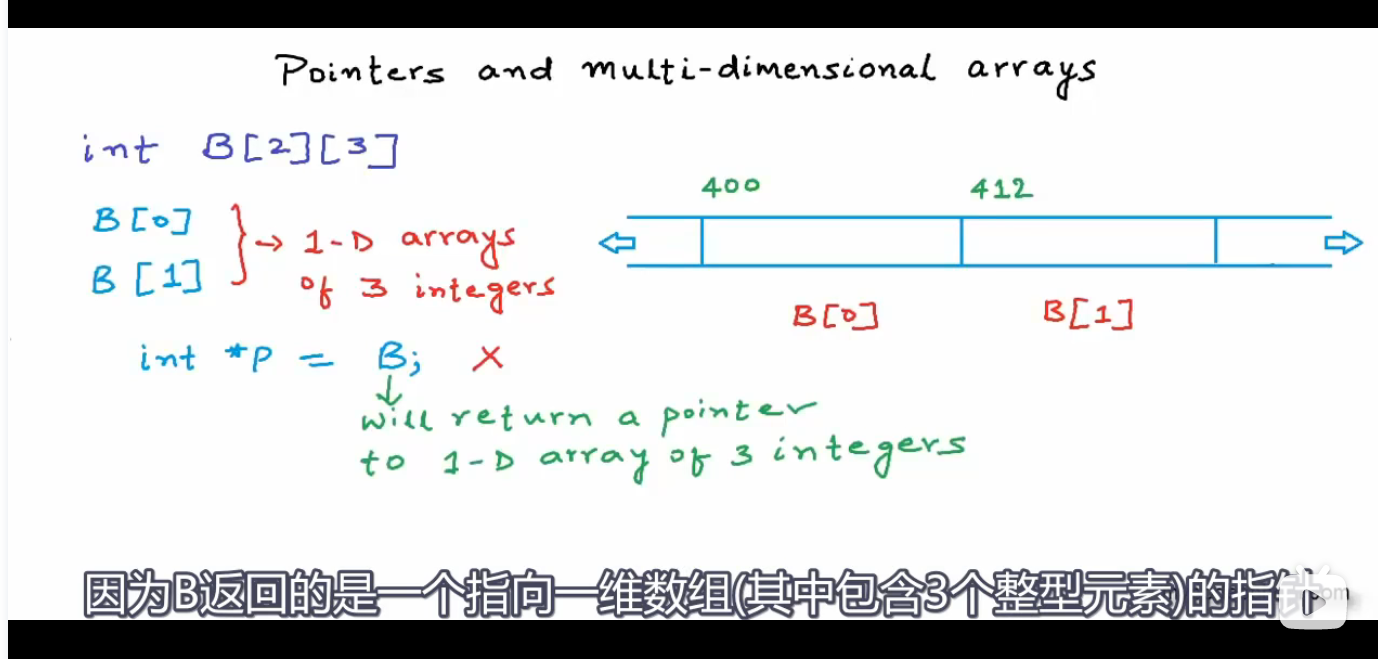 Pointers and multi-dimensional arrays
int B[2][3]
400 412
B[0]
B[1]
→ 1-D arrays
of 3 integers
B[0] B[1]
int *p = B; X
↓
will return a pointer
to 1-D array of 3 integers
因为B返回的是一个指向一维数组(其中包含3个整型元素)的指针